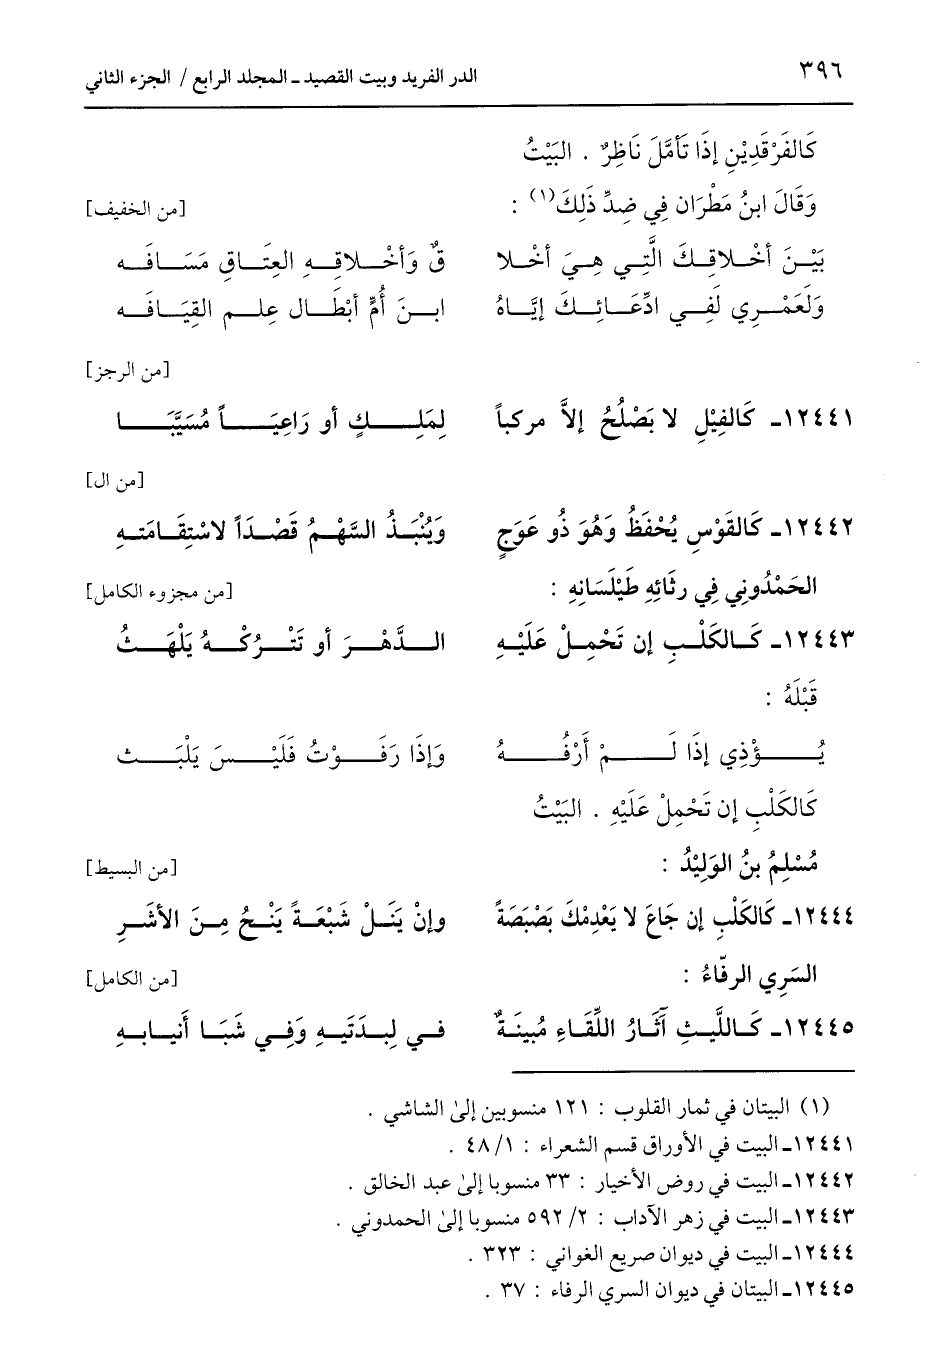 ٣٩٦ الدر الفريد وبيت القصيد ـ المجلد الرابع / الجزء الثاني
كَالفَرْقَدِيْنِ إِذَا تَأمَّلَ نَاظِرٌ . البَيْتُ
وَقَالَ ابنُ مَطْرَان فِي ضِدِّ ذَلِكَ(١) : [من الخفيف]
بَيْنَ أخْلاقِكَ الَّتِي هِيَ أخْلا قٌ وَأخْلاقِهِ العِتَاقِ مَسَافَه
وَلَعَمْرِي لَفِي ادِّعَائِكَ إيَّاهُ ابنَ أُمٍّ أبْطَال عِلم القِيَافَه
[من الرجز]
١٢٤٤١ـ كَالفِيْلِ لا يَصْلُحُ إلاَّ مركباً لِمَلِكٍ أو رَاعِيَاً مُسَيَّبَا
[من ال]
١٢٤٤٢ـ كَالقَوْسِ يُحْفَظُ وَهُوَ ذُو عَوَجٍ وَيُنْبَذُ السَّهْمُ قَصْدَاً لاسْتِقَامَتهِ
الحَمْدُونِي فِي رثَائِهِ طَيْلَسَانِهِ : [من مجزوء الكامل]
١٢٤٤٣ـ كَالكَلْبِ إن تَحْمِلْ عَلَيْهِ الدَّهْرَ أو تَتْرُكْهُ يَلْهَثُ
قَبْلَهُ :
يُؤْذِي إذَا لَمْ أرْفُهُ وَإِذَا رَفَوْتُ فَلَيْسَ يَلْبَث
كَالكَلْبِ إن تَحْمِلْ عَلَيْهِ . البَيْتُ
مُسْلِمُ بنُ الوَلِيْدُ : [من البسيط]
١٢٤٤٤ـ كَالكَلْبِ إن جَاعَ لا يَعْدِمْكَ بَصْبَصَةً وإنْ يَنَلْ شَبْعَةً يَنْحُ مِنَ الأشَرِ
السَرِي الرفّاءُ : [من الكامل]
١٢٤٤٥ـ كَاللَّيثِ آثَارُ اللِّقَاءِ مُبِينَةٌ في لِبدَتَيهِ وَفِي شَبَا أنيابهِ
(١) البيتان في ثمار القلوب : ١٢١ منسوبين إلىٰ الشاشي .
١٢٤٤١ـ البيت في الأوراق قسم الشعراء : ١/ ٤٨ .
١٢٤٤٢ـ البيت في روض الأخيار : ٣٣ منسوبا إلىٰ عبد الخالق .
١٢٤٤٣ـ البيت في زهر الآداب : ٢/ ٥٩٢ منسوبا إلىٰ الحمدوني .
١٢٤٤٤ـ البيت في ديوان صريع الغواني : ٣٢٣ .
١٢٤٤٥ـ البيتان في ديوان السري الرفاء : ٣٧ .